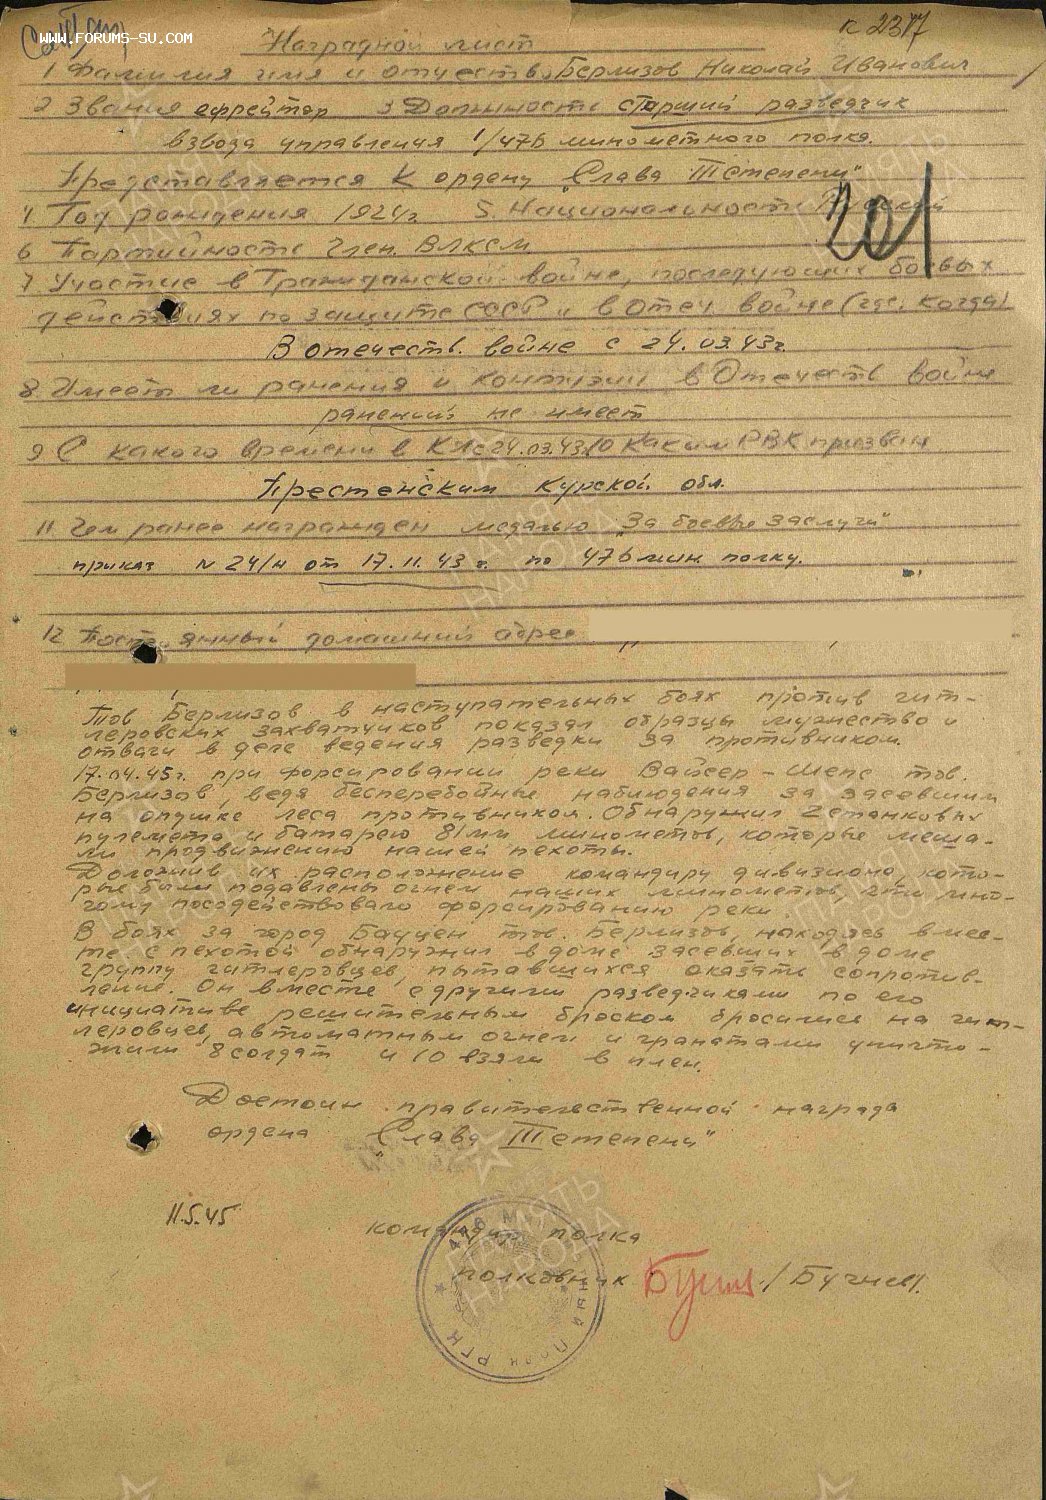 WWW.FORUMS-SU.COM
к 2377
Наградной лист
1 Фамилия имя и отчество Берлизов Николай Иванович
2 Звания ефрейтор 3 Должность старший разведчик
взвода управления 1/476 минометного полка.
Представляется к ордену „Слава III степени"
201
4 Год рождения 1924г. 5. Национальность Русский
6 Партийность Член. ВЛКСМ
7 Участие в Гражданской войне, последующих боевых
действиях по защите СССР и в Отеч войне (где, когда).
В отечеств. войне с 24.03.43г.
8 Имеет ли ранения и контузии в Отечеств войне
ранений не имеет
9 С какого времени в КА с 24.03.43г. 10 Каким РВК призван
Престенским Курской обл.
11 Чем ранее награжден медалью „За боевые заслуги"
приказ N 24/н от 17.11.43 г. по 476 мин. полку.
12 Постоянный домашний адрес
Тов Берлизов в наступательных боях против гит-
леровских захватчиков показал образцы мужество и
отваги в деле ведения разведки за противником.
17.04.45г. при форсировании реки Вайсер-Шепс тов.
Берлизов, ведя бесперебойные наблюдения за засевшим
на опушке леса противником. Обнаружил 2 станковых
пулемета и батарею 81мм минометов, которые меша-
ли продвижению нашей пехоты.
Доложив их расположение командиру дивизиона, кото-
рые были подавлены огнем наших минометов, эти мно-
гому посодействовало форсированию реки.
В боях за город Бауцен тов. Берлизов, находясь вмес-
те с пехотой обнаружил в доме засевших в доме
группу гитлеровцев, пытавшихся оказать сопротив-
ление. Он вместе с другими разведчиками по его
инициативе решительным броском бросились на гит-
леровцев, автоматным огнем и гранатами уничто-
жили 8 солдат и 10 взяли в плен.
Достоин правительственной награда
ордена „Слава III степени"
11.5.45
командир полка
полковник /Бучнев/.